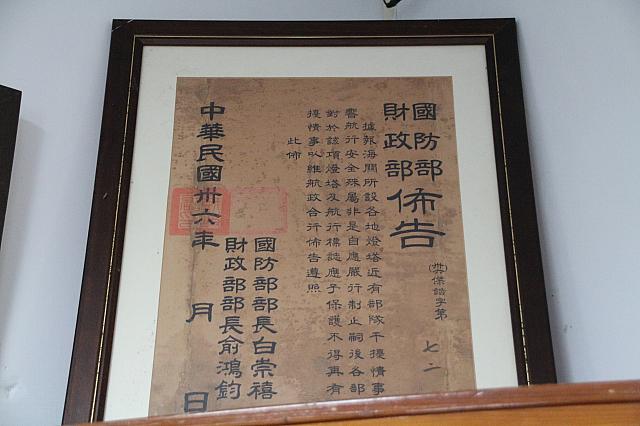 國防部
財政部
佈告
據報海關所設各地燈塔近有部隊干擾情事
響航行安全殊屬非是自應嚴行制止嗣後各部
對於該項燈塔及航行標誌應予保護不得再有
擾情事以維航政合行佈告遵照
此佈
國防部部長白崇禧
財政部部長俞鴻鈞
中華民國卅六年 月 日